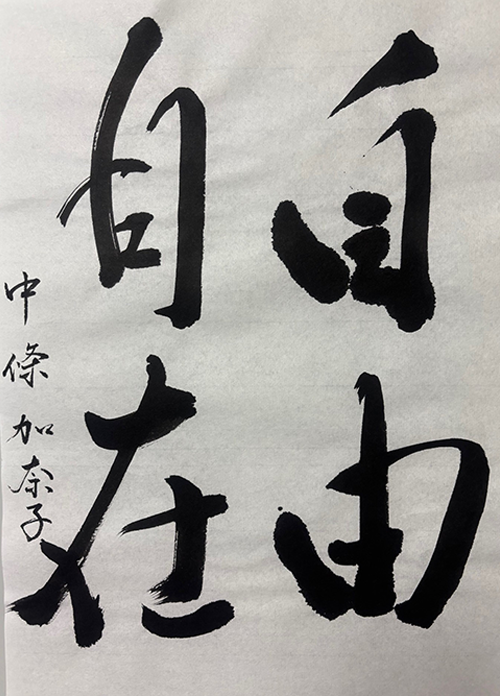 自由
自在
中條加奈子